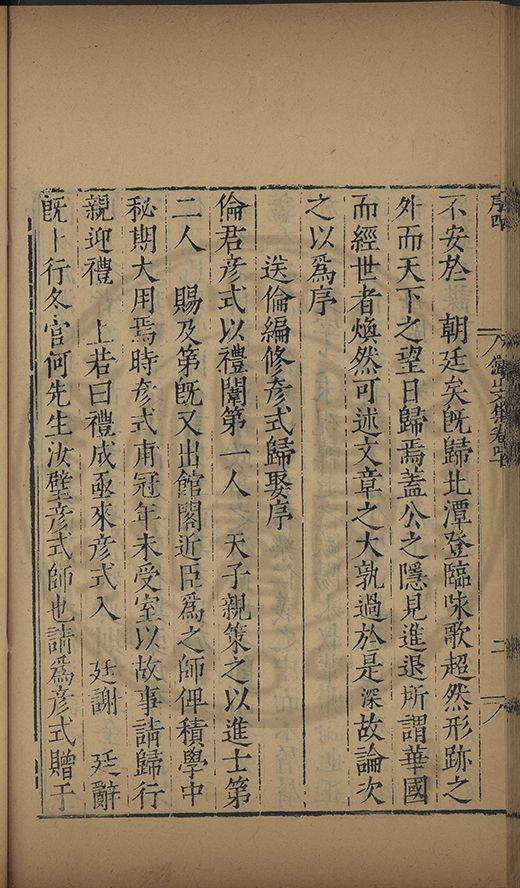 不安於　朝廷矣旣歸北潭登臨咏歌超然形跡之
外而天下之望日歸焉蓋公之隱見進退所謂華國
而經世者煥然可述文章之大孰過於是深故論次
之以爲序
送倫編修彥式歸娶序
倫君彥式以禮闈第一人　天子親策之以進士第
二人　賜及第旣又出館閣近臣爲之師俾積學中
秘期大用焉時彥式甫冠年未受室以故事請歸行
親迎禮　上若曰禮成亟來彥式入　廷謝　廷辭
旣卜行冬官何先生汝璧彥式師也請爲彥式贈于